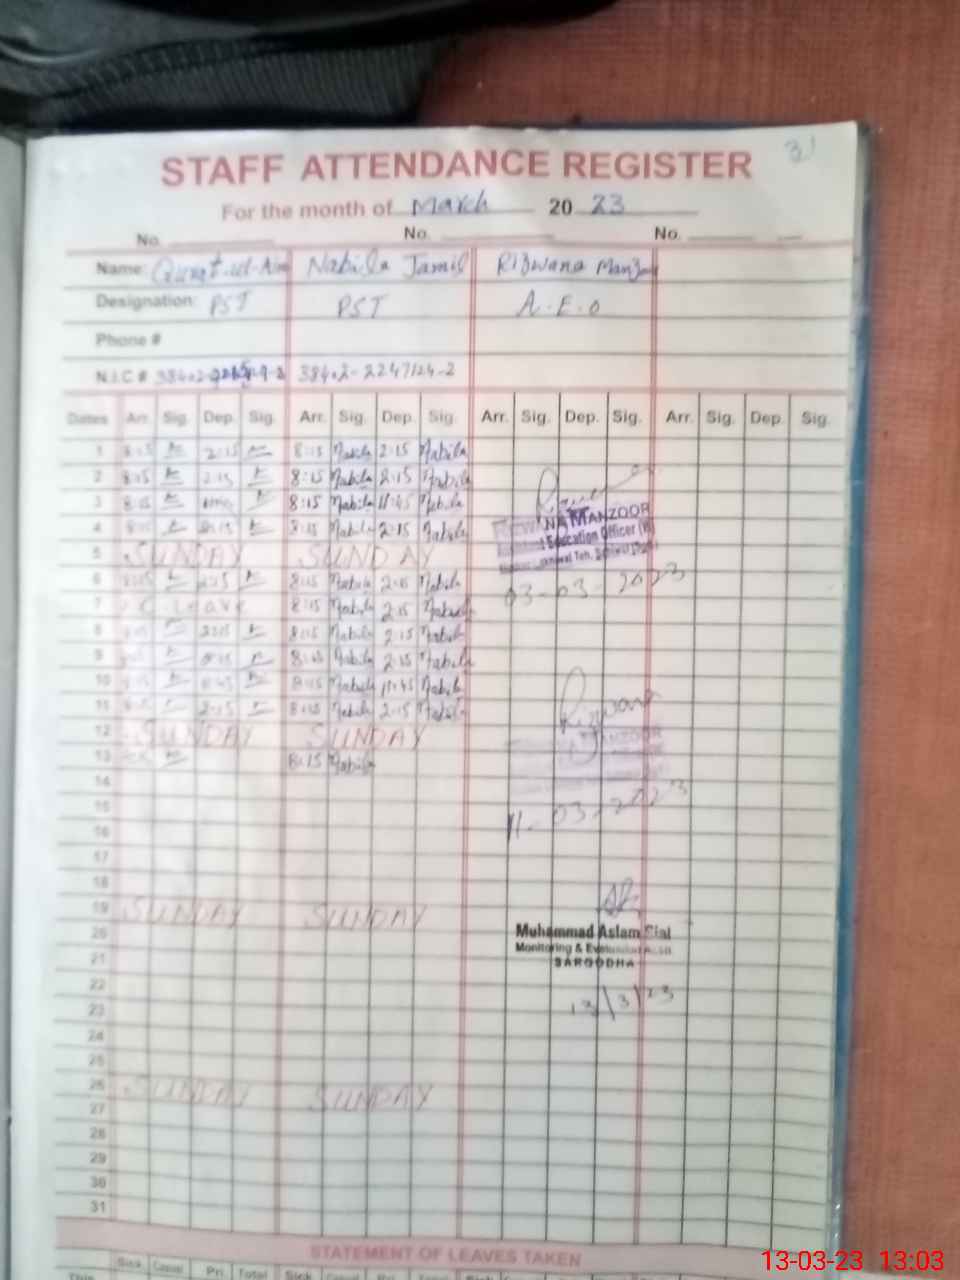 31
STAFF ATTENDANCE REGISTER
For the month of March 2023
No. No. No.
Name: Qurat-ul-Ain Nabila Jamil Rizwana Manzoor
Designation: PST PST A.E.O
Phone #
N.I.C # 38402- 38402-2247124-2
Dates Arr. Sig. Dep. Sig. Arr. Sig. Dep. Sig. Arr. Sig. Dep. Sig. Arr. Sig. Dep. Sig.
1 8:15 2:15 8:15 Nabila 2:15 Nabila
2 8:15 2:15 8:15 Nabila 2:15 Nabila
3 8:15 8:15 Nabila 11:45 Nabila
4 8:15 2:15 8:15 Nabila 2:15 Nabila
RIZWANA MANZOOR
Education Officer
5 SUNDAY SUNDAY
6 8:15 2:15 8:15 Nabila 2:15 Nabila
03-03-2023
7 C.Leave 8:15 Nabila 2:15 Nabila
8 8:15 2:15 8:15 Nabila 2:15 Nabila
9 2:15 8:15 Nabila 2:15 Nabila
10 8:15 11:45 8:15 Nabila 11:45 Nabila
11 8:15 2:15 8:15 Nabila 2:15 Nabila
Rizwana
12 SUNDAY SUNDAY
MANZOOR
13 8:15 Nabila
14
15
11-03-2023
16
17
18
19 SUNDAY SUNDAY
20
Muhammad Aslam Sial
Monitoring & Evaluation
21
SARGODHA
22
23
13/3/23
24
25
26 SUNDAY SUNDAY
27
28
29
30
31
STATEMENT OF LEAVES TAKEN
Sick Casual Pri. Total Sick Casual Pri.
This
13-03-23 13:03